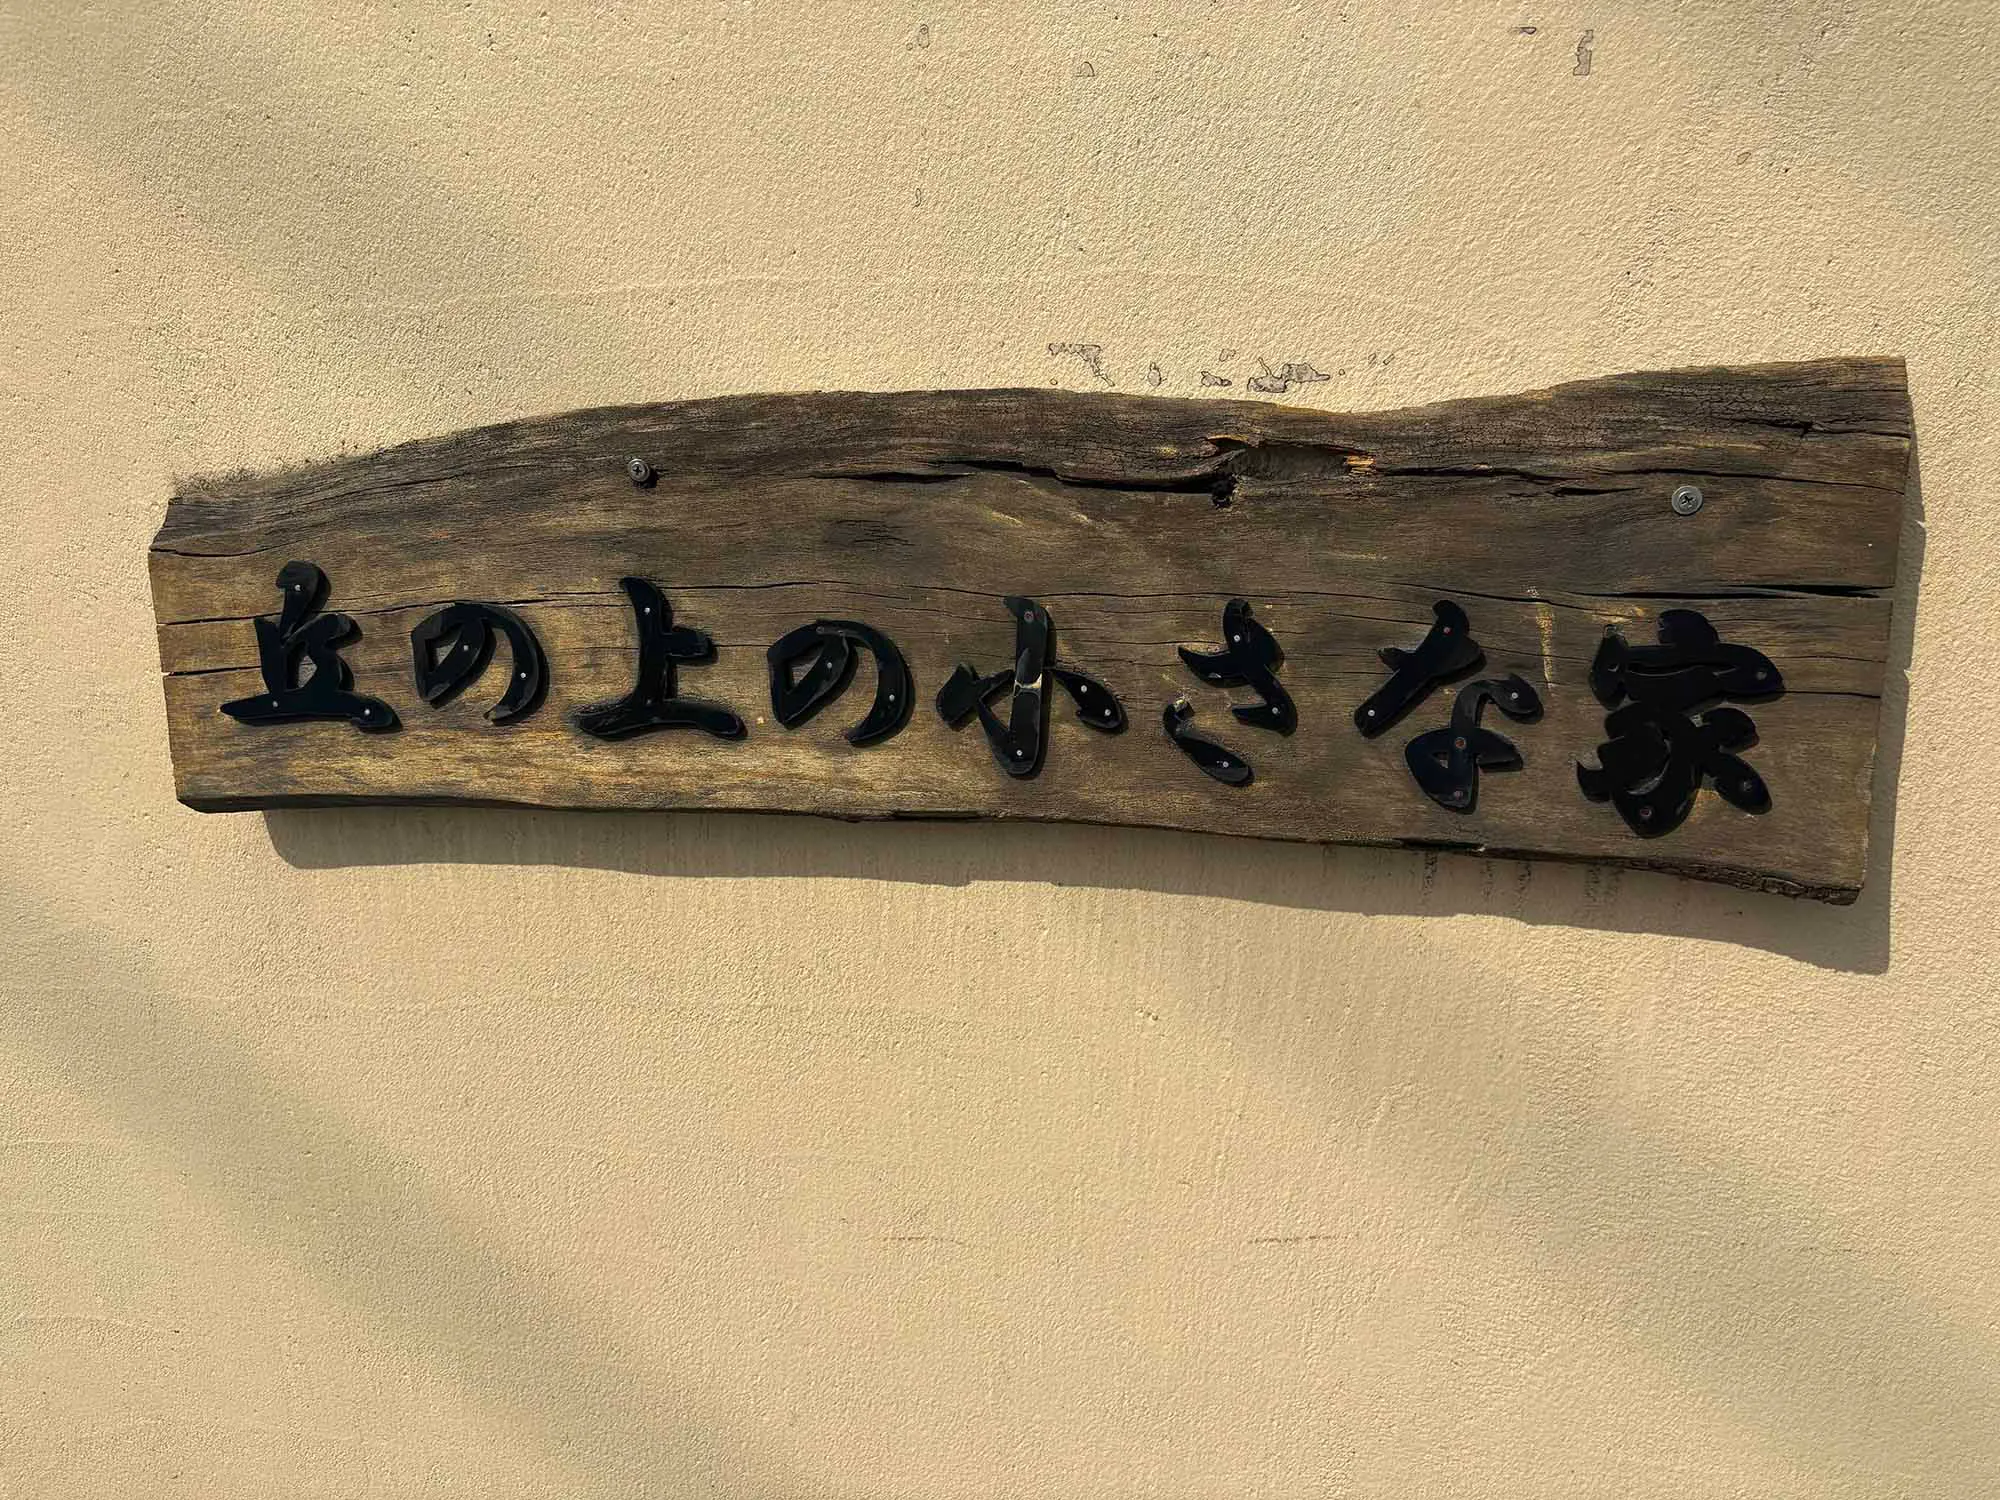 丘の上の小さな家